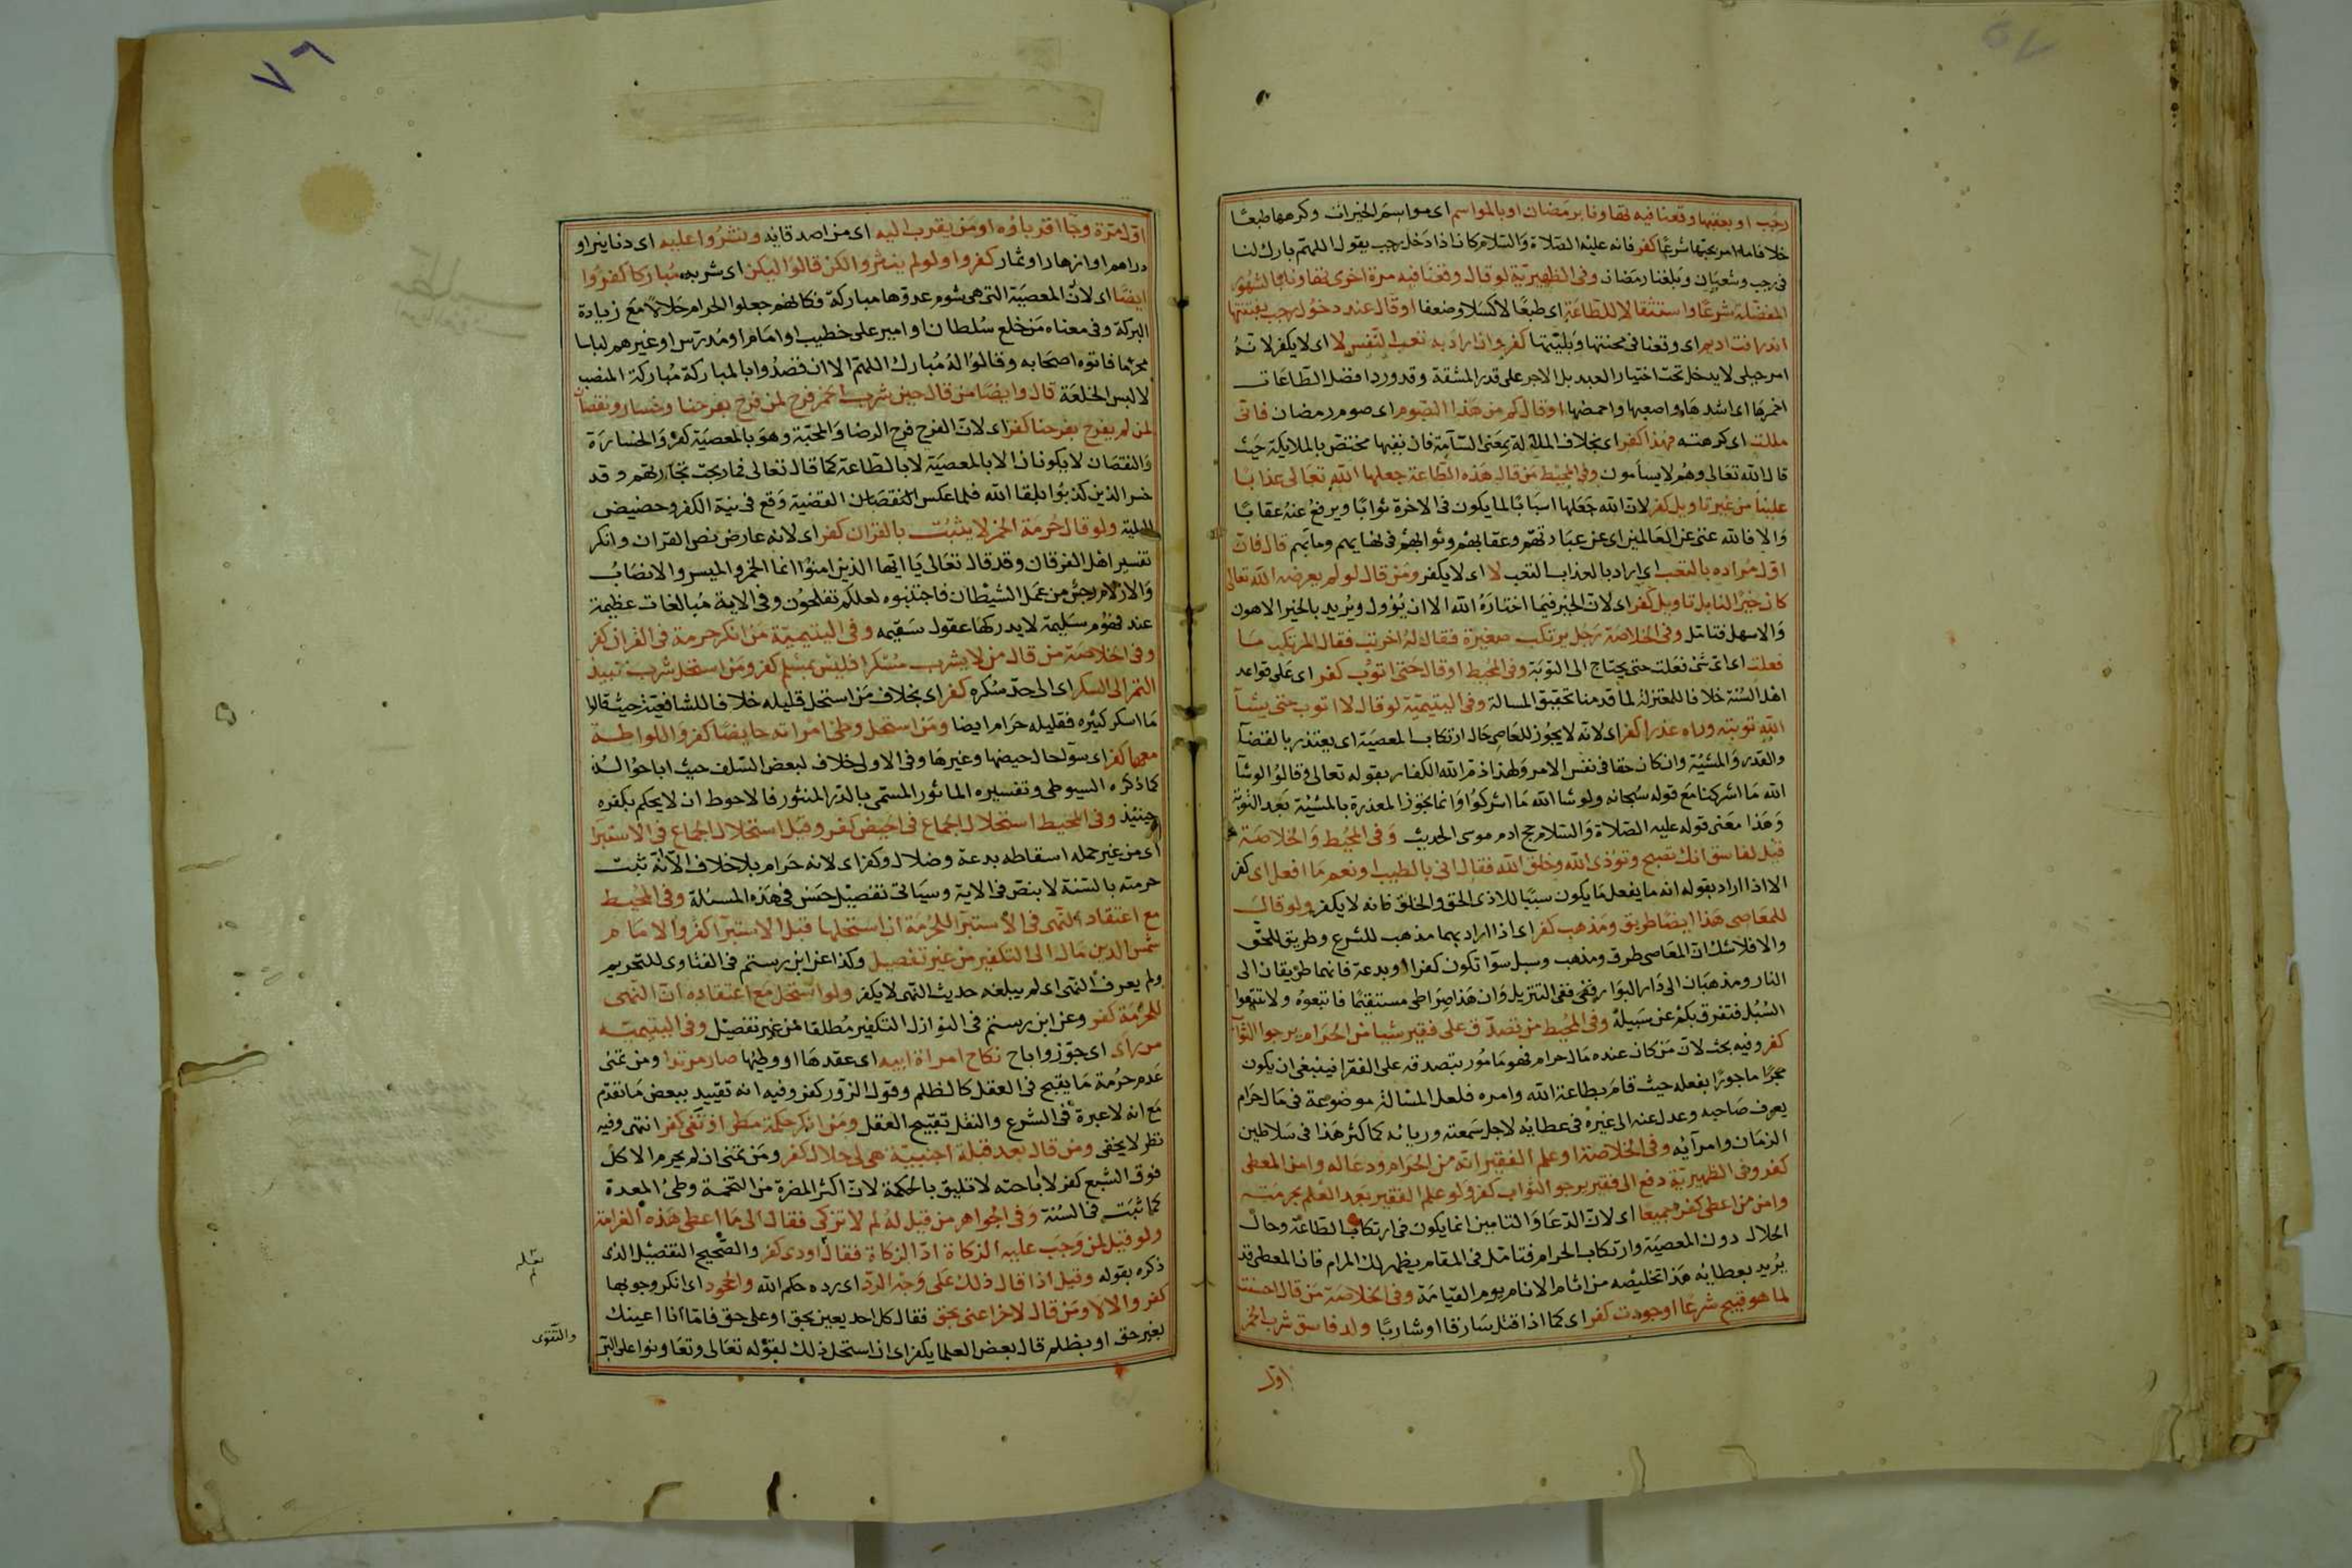 رجب او بعقبها وقعنا فيه تهاونا برمضان او بالمواسم اى مواسم الخيرات وكرهها طبعا
خلافا لما امر بحبتها شرعا كفر فانه عليه الصلاة والسلام كان اذا دخل رجب يقول اللهم بارك لنا
فى رجب وشعبان وبلغنا رمضان وفى الظهيرية لو قال وقعنا فيه مرة اخرى تهاونا بالشهور
المفضلة شرعا واستثقالا للطاعة اى طبعا لا كسلا وضعفا او قال عند دخول رجب بفتنتها
اندر افتاديم اى وقعنا فى محنتها وبليتها كفر وان اراد به تعب النفس لا اى لا يكفر لانه
امر جبلى لا يدخل تحت اختيار العبد بل الاجر على قدر المشقة وقد ورد افضل الطاعات
احمزها اى اشدها واصعبها واحمضها او قال كم من هذا الصوم اى صوم رمضان فانى
مللت اى كرهته فهذا كفر اى بخلاف الملالة بمعنى السآمة فان نفيها مختص بالملايكة حيث
قال الله تعالى وهم لا يسأمون وفى المحيط من قال هذه الطاعة جعلها الله تعالى عذابا
علينا من غير تاويل كفر لان الله جعلها اسبابا لما يكون فى الاخرة ثوابا ويرفع عنه عقابا
والا فالله غنى عن العالمين اى عن عبادتهم وعقابهم وثوابهم فى نهايهم ومآبهم قال فان
اول مراده بالتعب اى اراد بالعذاب التعب لا اى لا يكفر ومن قال لو لم يفرضه الله تعالى
كان خيرا لنا بلا تاويل كفر اى لان الخير فيما اختاره الله الا ان يؤول ويريد بالخير الاهون
والاسهل فتامل وفى الخلاصة رجل يرتكب صغيرة فقال له اخر تب فقال المرتكب ما
فعلت اى اى شئ فعلت حتى يحتاج الى التوبة وفى المحيط او قال حتى اتوب كفر اى على قواعد
اهل السنة خلافا للمعتزلة لما قدمنا تحقيق المسالة وفى اليتيمية لو قال لا اتوب حتى يشآ
الله توبته وراه عذرا كفر اى لانه لا يجوز للعاصى حال ارتكاب المعصية اى يعتذر بالقضآ
والقدر والمشيّة وان كان حقا فى نفس الامر ولهذا ذم الله الكفار بقوله تعالى وقالوا لو شآ
الله ما اشركنا مع قوله سبحانه ولو شا الله ما اشركوا وانما يجوز المعذرة بالمشيّة بعد التوبة
وهذا معنى قوله عليه الصلاة والسلام حج ادم موسى الحديث وفى المحيط والخلاصة
قيل لفاسق انك تصبح وتؤذى الله وخلق الله فقال انى بالطيب ونعم ما افعل اى كفر
الا اذا اراد بقوله انه ما يفعل ما يكون سببا للاذى الحق والخلق فانه لا يكفر ولو قال
للمعاصى هذا ايضا طريق ومذهب كفر اى اذا اراد بهما مذهب للشرع وطريق للحق
والا فلا شك ان المعاصى طرق ومذهب وسبل سوا تكون كفرا او بدعة فانهما طريقان الى
النار ومذهبان الى دار البوار ففى التنزيل وان هذا صراطى مستقيما فاتبعوه ولا تتبعوا
السبل فتفرق بكم عن سبيله وفى المحيط من تصدق على فقير شيا من الحرام يرجو الثوآ
كفر وفيه بحث لان من كان عنده مال حرام فهو مامور بتصدقه على الفقرا فينبغى ان يكون
ماجورا بفعله حيث قام بطاعة الله وامره فلعل المسالة موضوعة فى مال حرام
يعرف صاحبه وعدل عنه الى غيره فى عطايه لاجل سمعته وريائه كما كثر هذا فى سلاطين
الزمان وامرآئه وفى الخلاصة او علم الفقير انه من الحرام ودعا له وامن المعطى
كفر وفى الظهيرية دفع الى فقير يرجو الثواب كفر ولو علم الفقير بعد العلم بحرمته
وامن من اعطى كفر جميعا اى لان الدعا والتامين انما يكون فى ارتكاب الطاعة وحال
الحلال دون المعصية وارتكاب الحرام فتامل فى المقام يظهر لك المرام فان المعطى قد
يريد بعطايه هذا تخليصه من اثام الانام يوم القيامة وفى الخلاصة من قال احسنت
لما هو قبيح شرعا او جودت كفر اى كما اذا قتل سارقا او شاربا ولد فاسق شرب الخمر
اول
٧٦
اول مرة وجا اقرباؤه او من يقرب اليه اى من اصدقايه ونثروا عليه اى دنانير او
دراهم او ازهار او ثمار كفروا ولو لم ينثروا لكن قالوا ليكن اى شربه مباركا كفروا
ايضا اى لان المعصية التى هى شوم عدوها مباركة فكانهم جعلوا الحرام حلالا مع زيادة
البركة وفى معناه من خلع سلطان او امير على خطيب او امام او مدرس او غيرهم لباسا
محرما فاتوه اصحابه وقالوا له مبارك اللهم الا ان قصدوا بالمباركة مباركة المنصب
لا لبس الخلعة قال وايضا من قال حين شرب الخمر فرح لمن فرح بفرحنا وخسار ونقصان
لمن لم يفرح بفرحنا كفر اى لان الفرح فرح الرضا والمحبة وهو بالمعصية كفر والخسارة
والنقصان لا يكونان الا بالمعصية لا بالطاعة كما قال تعالى فما ربحت تجارتهم وقد
خسر الذين كذبوا بلقا الله فلما عكس النقصان القضية وقع فى نية الكفر وحضيض
البلية ولو قال حرمة الخمر لا يثبت بالقران كفر اى لانه عارض نص القران وانكر
تفسير اهل الفرقان وقد قال تعالى يا ايها الذين امنوا انما الخمر والميسر والانصاب
والازلام رجس من عمل الشيطان فاجتنبوه لعلكم تفلحون وفى الاية مبالغات عظيمة
عند فهوم سليمة لا يدركها عقول سقيمه وفى اليتيمية من انكر حرمة فى القران كفر
وفى الخلاصة من قال من لا يشرب مسكرا فليس بمسلم كفر ومن استحل شرب نبيذ
التمر الى السكر اى الى حد منكره كفر اى بخلاف من استحل قليله خلافا للشافعية حيث قالوا
ما اسكر كثيره فقليله حرام ايضا ومن استحل وطئ امراته حايضا كفر واللواطة
معها كفر اى سوآ حال حيضها وغيرها وفى الاولى خلاف لبعض السلف حيث اباحوا
كما ذكره السيوطى وتفسيره الماثور المسمى بالدر المنثور فالاحوط ان لا يحكم بكفره
حينئذ وفى المحيط استحلال الجماع فى الحيض كفر وقيل استحلال الجماع فى الاستبرا
اى من غير حمله اسقاطه بدعة وضلال وكفر اى لانه حرام بلا خلاف الا انه ثبت
حرمته بالسنة لا بنص فى الاية وسياتى تفصيل حسن فى هذه المسئلة وفى المحيط
مع اعتقاد النهى فى الاستبرآ للحرمة ان استحلها قبل الاستبرآ كفر والامام
شمس الدين مال الى التكفير من غير تفصيل وكذا عن ابن رستم فى الفتاوى للتحريم
ولم يعرف النهى اى لم يبلغه حديث النهى لا يكفر ولو استحل مع اعتقاده ان النهى
للحرمة كفر وعن ابن رستم فى النوازل التكفير مطلقا من غير تفصيل وفى اليتيمية
من راى اى جوز واباح نكاح امراة ابيه اى عقدها او وطيها صار مرتدا ومن تمنى
عدم حرمة ما يقبح فى العقل كالظلم وقول الزور كفر وفيه انه تقييد ببعض ما تقدم
مع انه لا عبرة فى الشرع والنقل تقبيح العقل ومن انكر حكمة مطر او نفى كفر انتهى وفيه
نظر لا يخفى ومن قال بعد قبلة اجنبية هى لى حلال كفر ومن تمنى ان لم يحرم الاكل
فوق الشبع كفر لاباحته لا تليق بالحكمة لان اكثر المضرة من التخمة وطئ المعدة
كما ثبت فى السنة وفى الجواهر من قيل له لم لا تزكى فقال الى ما اعطى هذه الغرامة
ولو قيل لمن وجب عليه الزكاة ادّ الزكاة فقال لا اودى كفر والصحيح التفصيل الذى
ذكره بقوله وقيل اذا قال ذلك على وجه الرد اى رده حكم الله والجحود اى انكر وجوبها
كفر والا لا ومن قال لاخر اعنى بحق فقال كل احد يعين بحق او على حق فاما انا اعينك
بغير حق او بظلم قال بعض العلما يكفر اى ان استحل ذلك لقوله تعالى وتعاونوا على البر
والتقوى